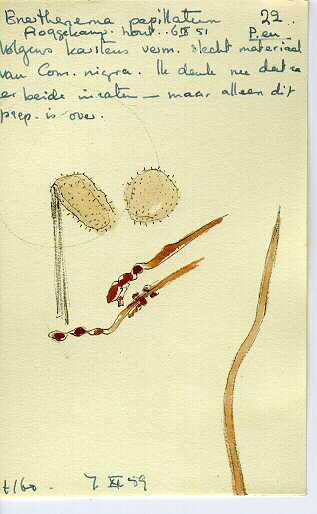 Enerthenema papillatum 22.
Roggekamp. hout. 6 IX 51 P.en
Volgens Karstens verm. slecht materiaal
van Com. nigra. Ik denk nu dat ze
er beide in zaten — maar alleen dit
prep. is over.
7 XI 59